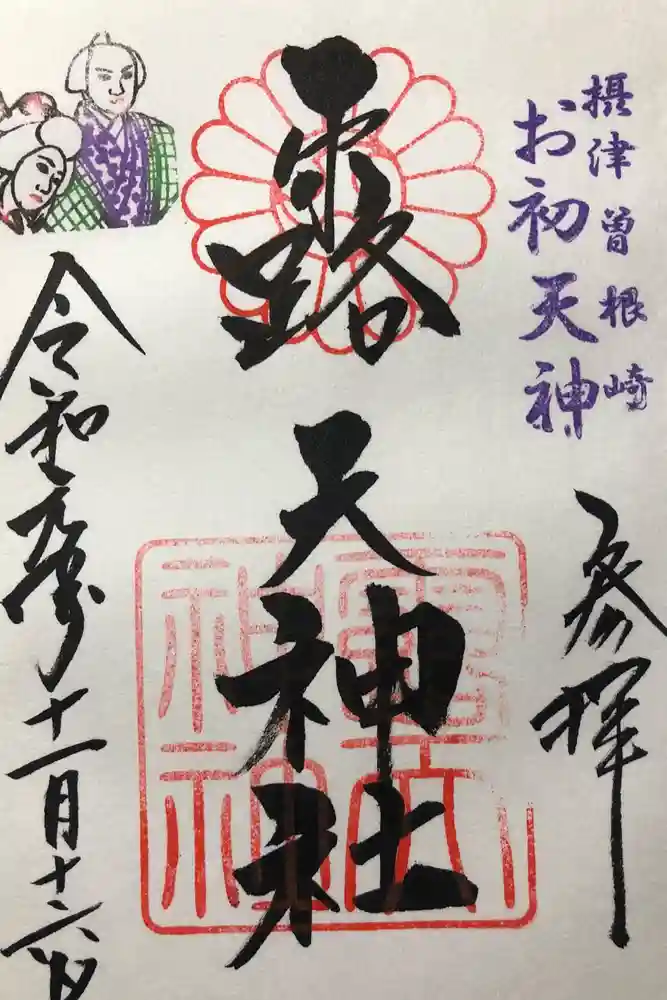 摂津曽根崎
お初天神
参拝
露天神社
令和元歳十一月十六日